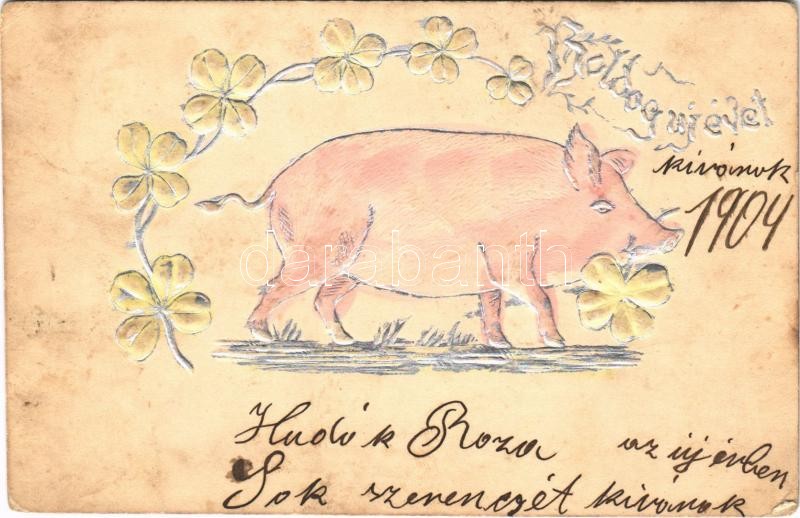 Boldog uj évet
kivánok
1904
darabanth
Hudák Roza az új évben
Sok szerencsét kivánok